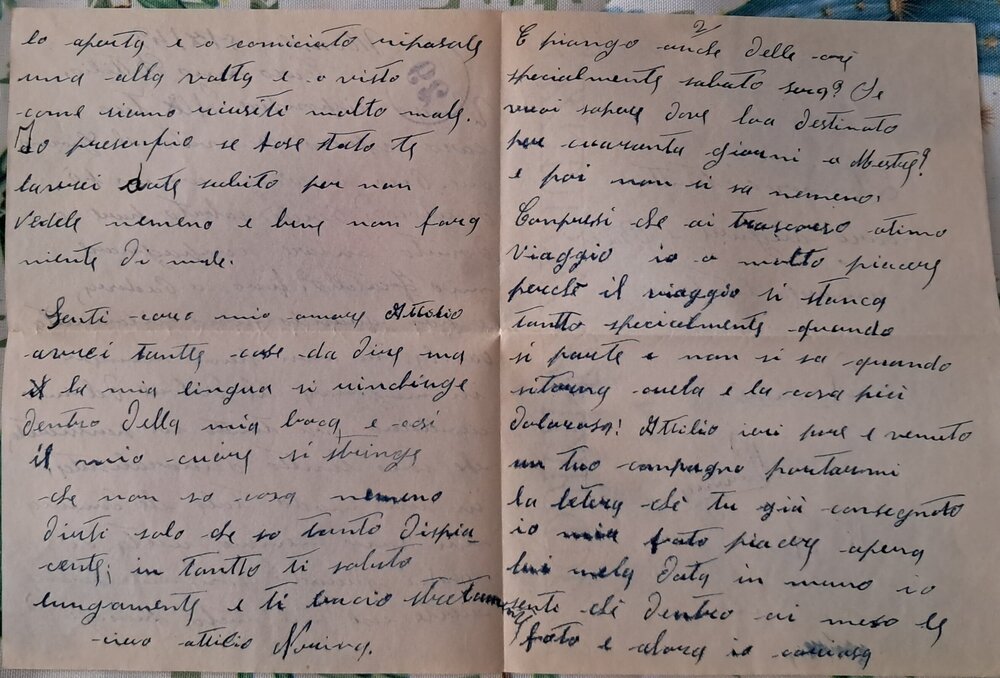 lo aperta e o comiciato riposale
una alla volta e o visto
come siamo riusiti molto male.
Io presempio se fose stato te
lavrei date subito per non
vedele nemeno e bene non farg
niente di male.
Senti caro mio amore Attilio
avrei tante cose da dire ma
la mia lingua si
dentro della mia boca e così
il mio cuore si stringe
che non so cosa nemeno
dirti solo che so tanto dispia-
cente; in tantto ti saluto
lungamente e ti bacio stretamente
caro attilio
2
E piango anche delle ore
specialmente sabato sera? Se
vuoi sapere dove lova destinato
per cuaranta giorni a Mestre?
e poi non si sa nemeno.
Conpresi che ai trascorso otimo
viaggio io o molto piacere
perchè il viaggio si stanca
tantto specialmente quando
si parte e non si sa quando
sitorna cuela e la cosa più
dolorosa! Attilio ieri pure e venuto
un tuo conpagno portarmi
la letera che tu gia consegnato
io mia fato piacere apena
lui mela data in mano io
senti che dentro ai meso le
foto e alora io